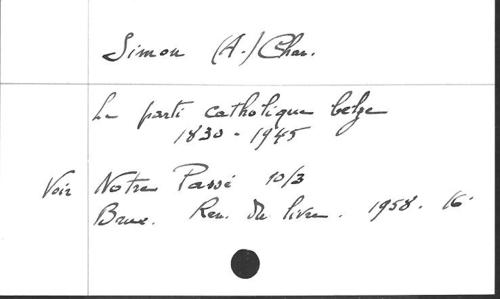 Simon (A.) Chan.
Le parti catholique belge
1830-1945
Voir Notre Passé 10/3
Brux. Ren. du livre. 1958. 16°